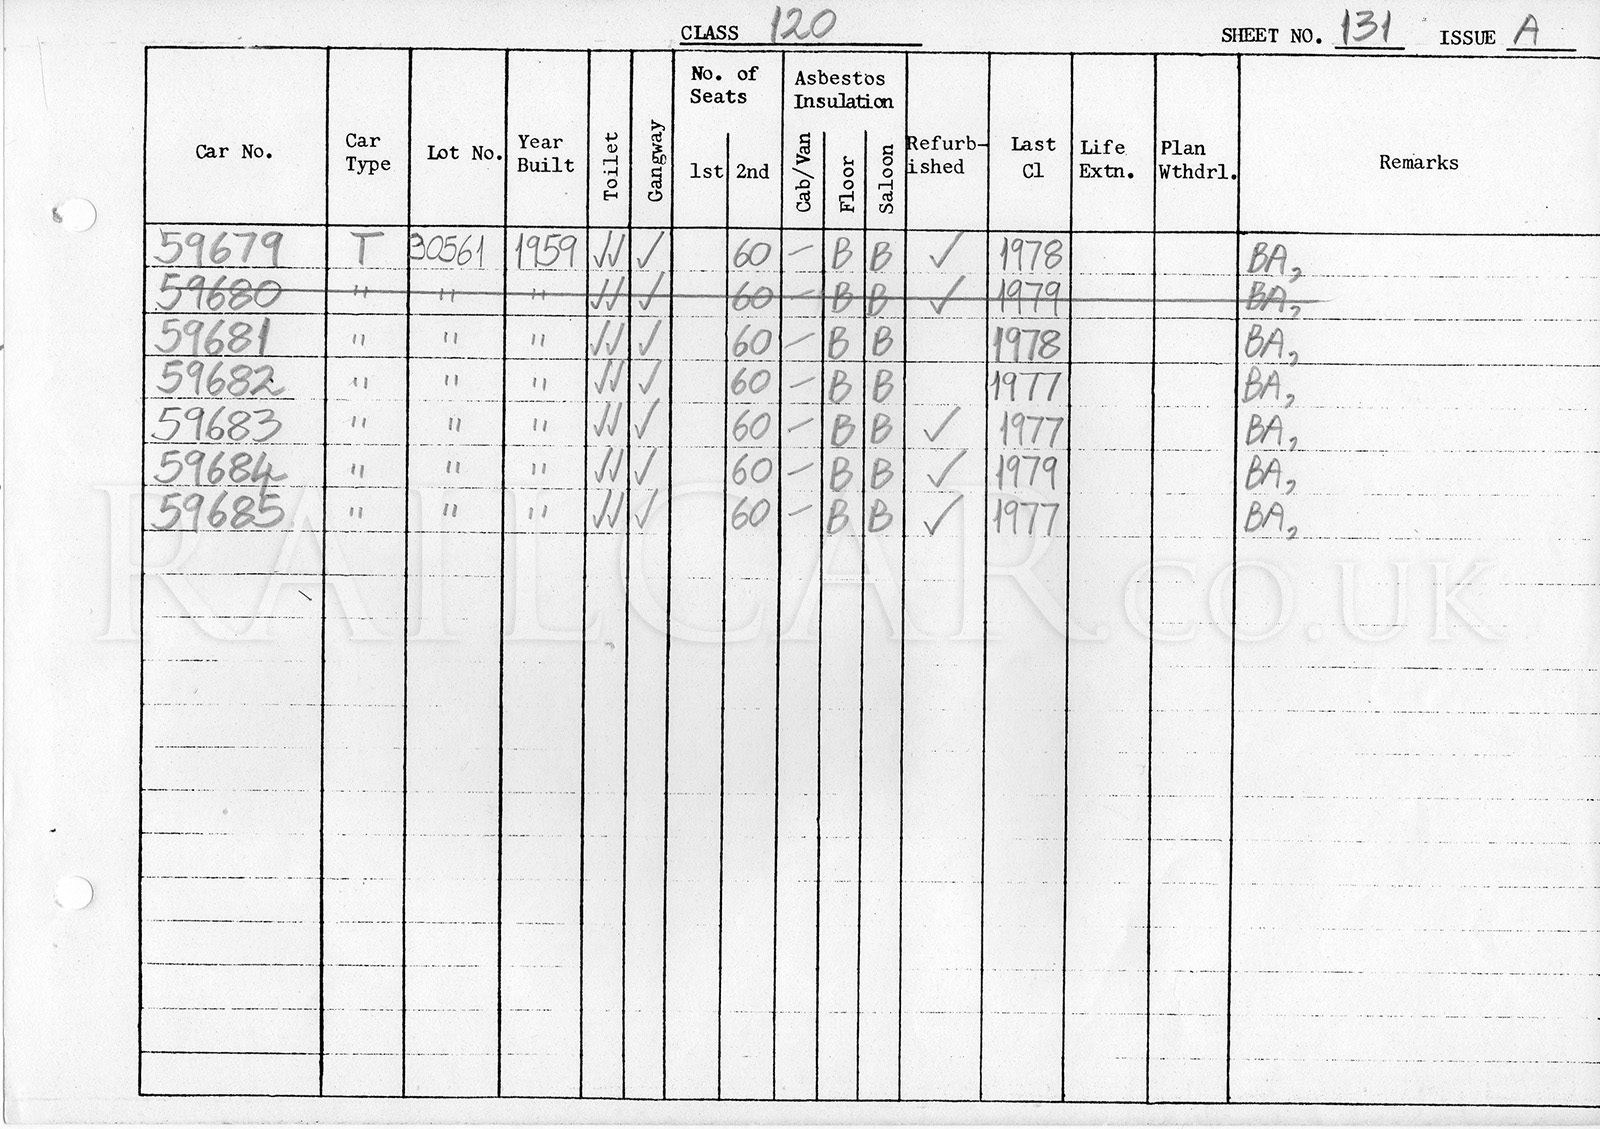 CLASS 120 SHEET NO. 131 ISSUE A
Car No. Car Type Lot No. Year Built Toilet Gangway No. of Seats 1st 2nd Asbestos Insulation Cab/Van Floor Saloon Refurb-ished Last Cl Life Extn. Plan Wthdrl. Remarks
59679 T 30561 1959 ✓✓ ✓ 60 – B B ✓ 1978 BA,
59680 " " " ✓✓ ✓ 60 – B B ✓ 1979 BA,
59681 " " " ✓✓ ✓ 60 – B B 1978 BA,
59682 " " " ✓✓ ✓ 60 – B B 1977 BA,
59683 " " " ✓✓ ✓ 60 – B B ✓ 1977 BA,
59684 " " " ✓✓ ✓ 60 – B B ✓ 1979 BA,
59685 " " " ✓✓ ✓ 60 – B B ✓ 1977 BA,
RAILCAR.CO.UK